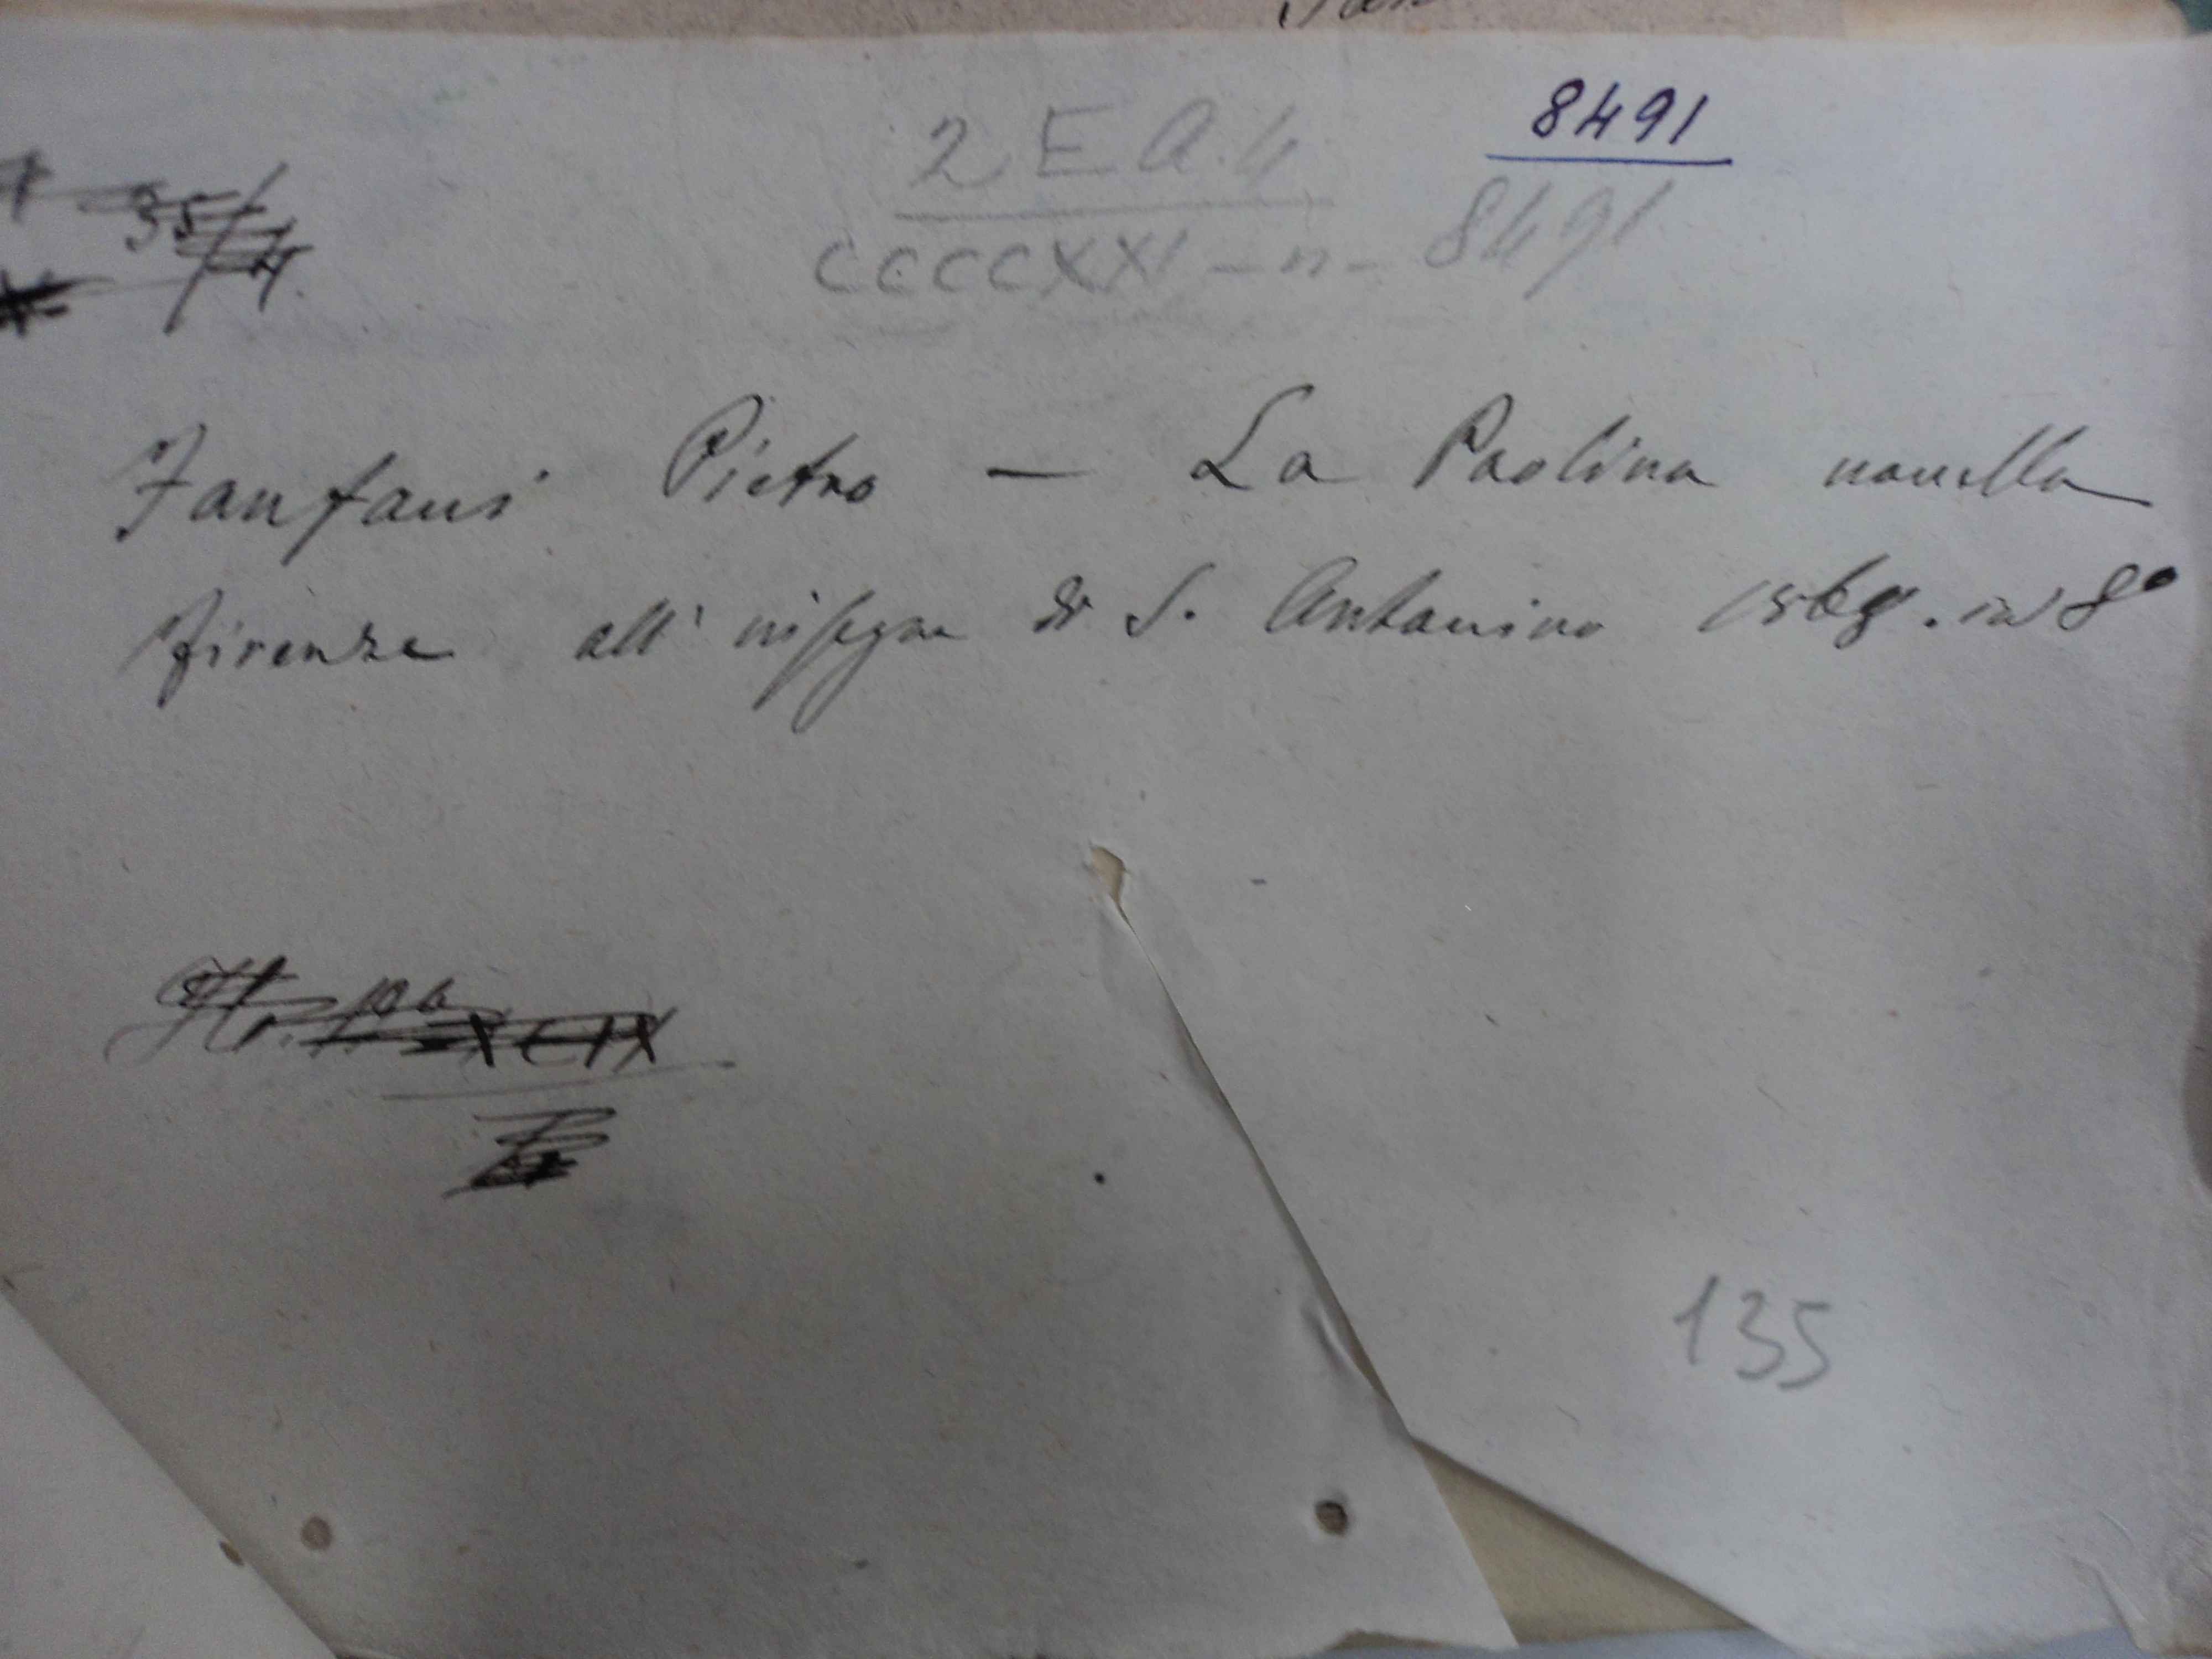 8491
2 E A. 4
CCCCXXI - n - 8491
35/4
Fanfani Pietro — La Paolina novella
Firenze all' insegna di S. Antonino 1868. in 8°
XCIX
135